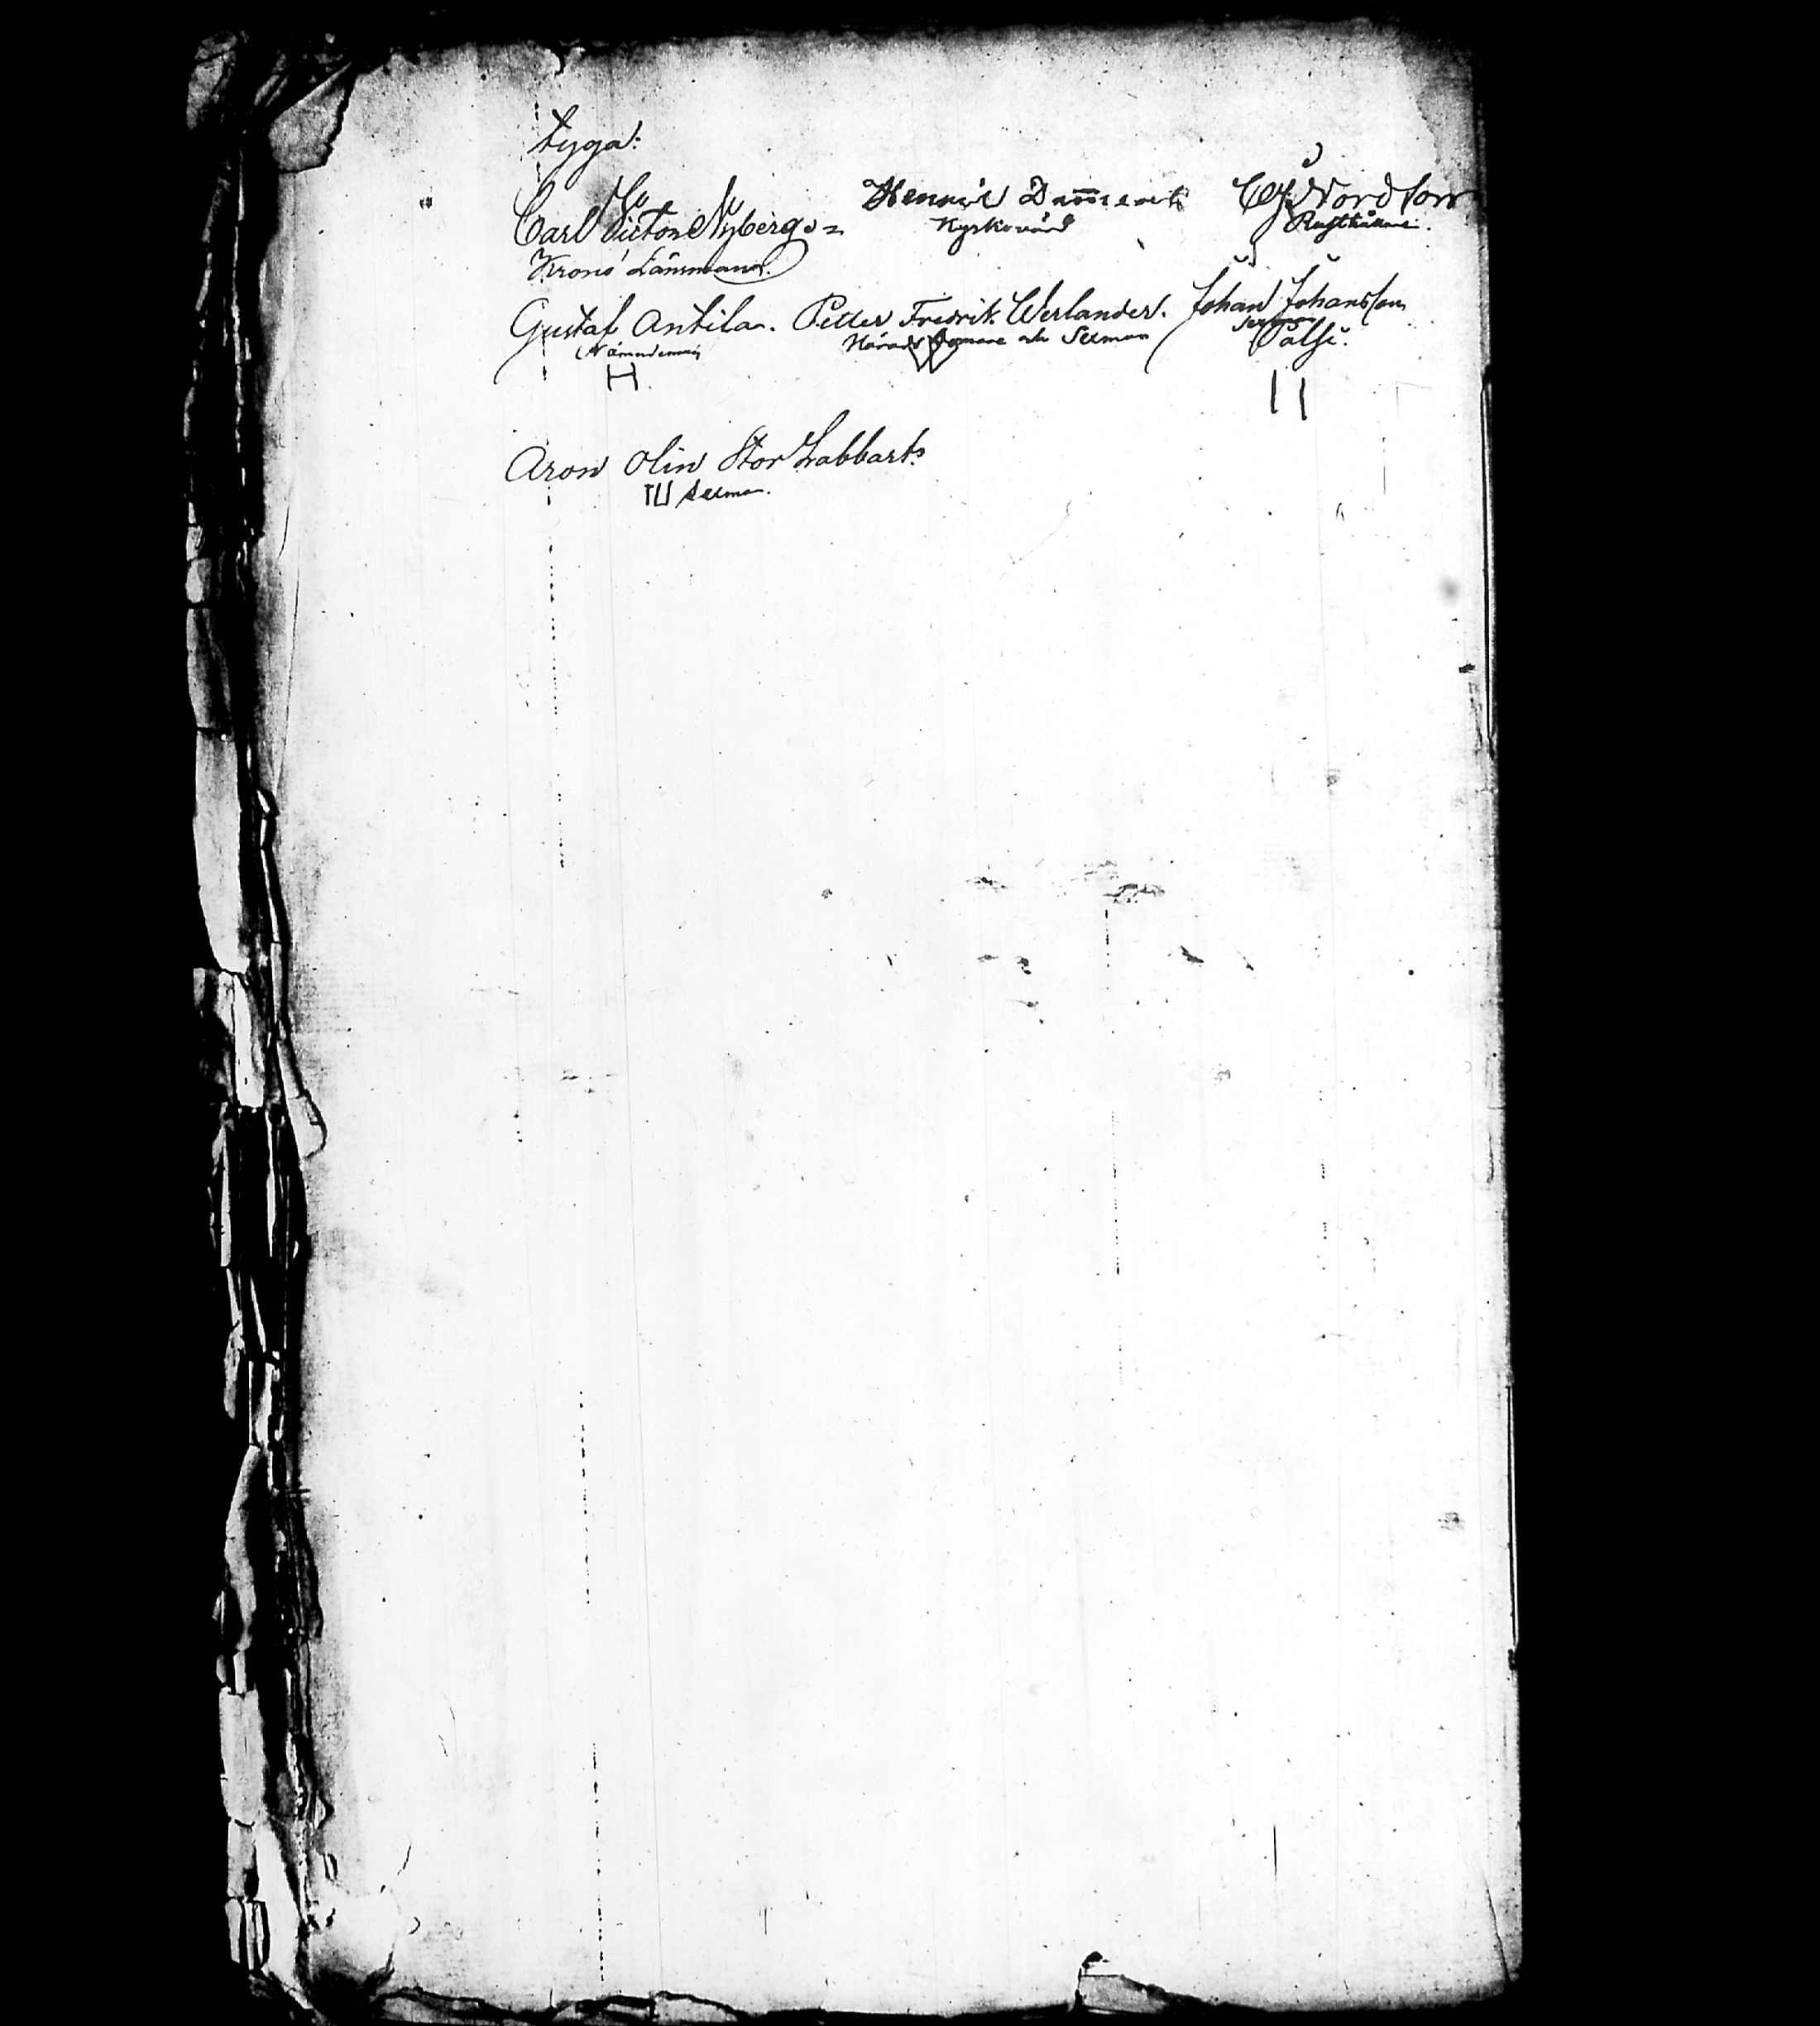 tyga:
Carl Victor Nyberg
Krono Länsman.
Henric
Kyrkovärd
CG Nordfors
Rusthållare.
Gustaf Antila.
Nämndeman
H
Petter Fredrik Werlander.
Härads Domare och Sexman
Johan Johansson
Sexman
Pälsi.
II
Aron Olin Stor Labbart
Sexman.